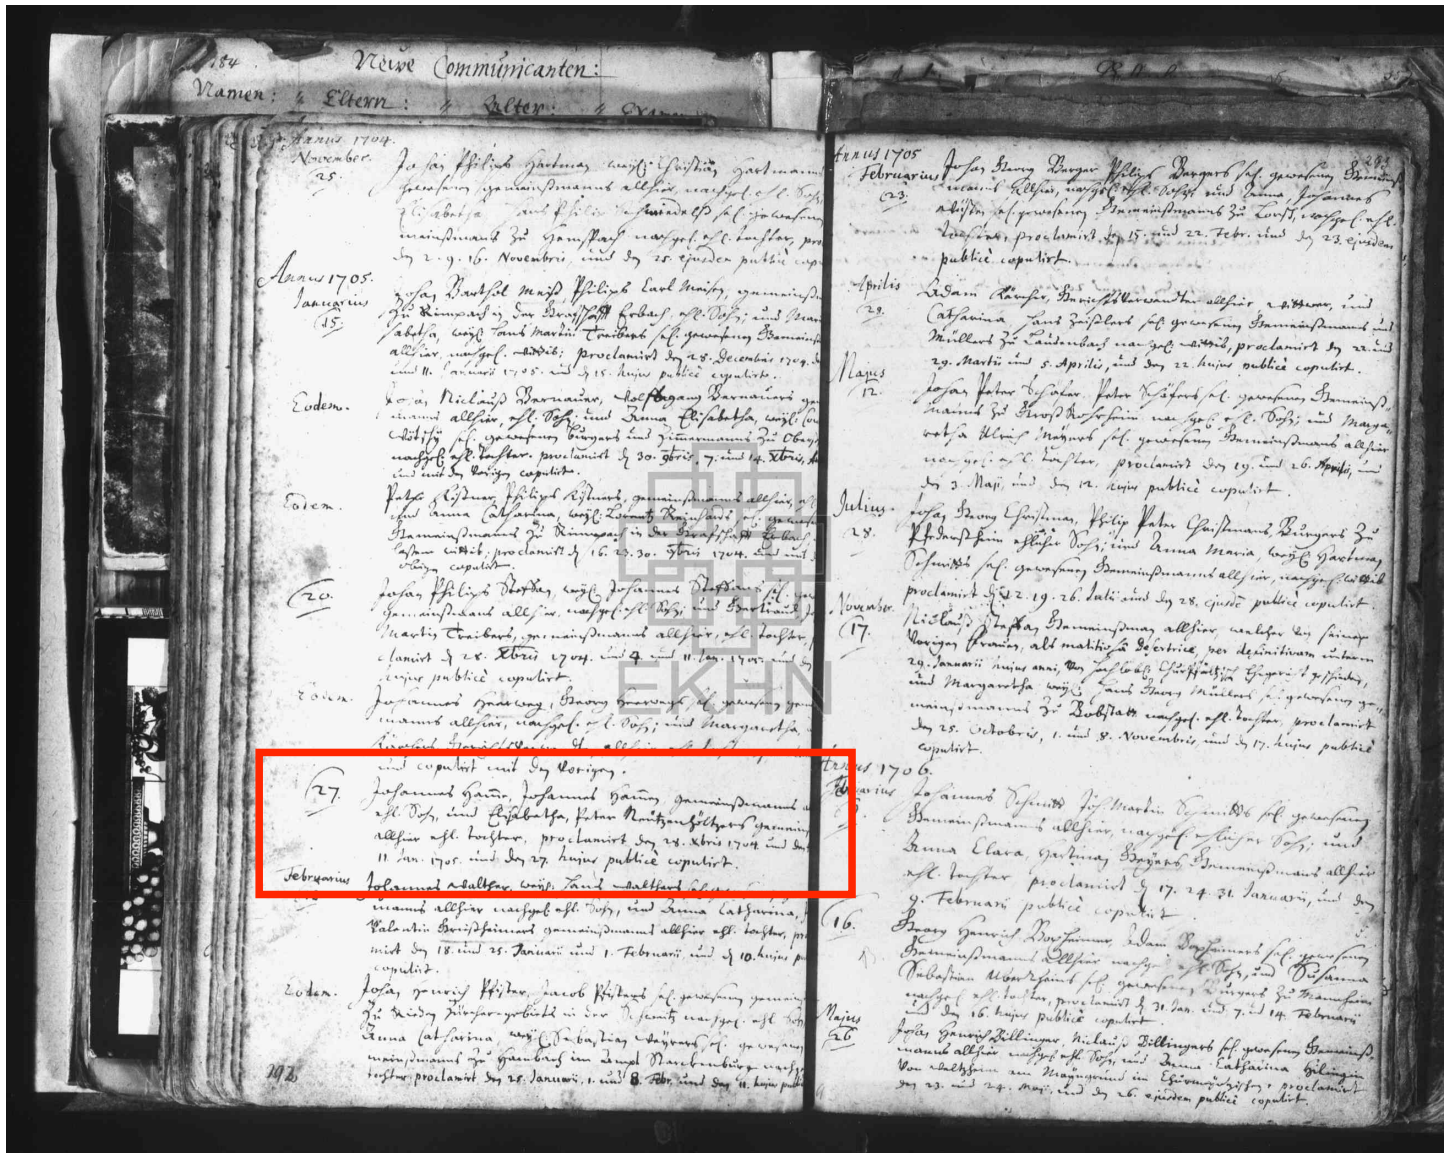 184
Neüe Communicanten:
Namen: " Eltern: " Alter: "
Annus 1704.
November.
25.
Johan Philips Hartman, weyl. Christian Hartmans
gewesenen gemeinßmanns allhier, nachgel. ehl. Sohn,
Elisabetha Philips sel. gewesenen
meinßmanns zu Hemspach nachgel. ehl. tochter,
den 2. 9. 16. Novembris, und den 25. ejusdem publicè
Annus 1705.
Januarius
15.
Johan Barthol Meiß Philips Carl Meisen, gemeinß
zu Rimpach in der Graffschafft Erbach, ehl. Sohn; und Mar
sabetha, weyl. Hans Martin Treibers sel. gewesenen Gemeinß
allhier, nachgel. wittib; proclamirt den 28. Decembris 1704.
und 11. Januarii 1705. und den 15. hujus publicè copulirt.
Eodem.
Johan Niclauß Bernauer, Wolffgang Bernauers ge
manns allhier, ehl. Sohn; und Anna Elisabetha, weyl.
sel. gewesenen bürgers und Zimmermanns zu
nachgel. ehl. tochter. proclamirt d. 30. 9bris, 7. und 14. Xbris,
und mit den vorigen copulirt.
Eodem.
Peter Kißner, Philips Kißners, gemeinßmanns allhier,
und Anna Catharina, weyl. Lorentz Reinhards sel. gewesenen
Gemeinßmanns zu Rimpach in der Graffschafft Erbach,
wittib; proclamirt d. 16. 23. 30. 9bris 1704. und mit
obigen copulirt.
20.
Johan Philips Steffan, weyl. Johannes Steffans sel.
gemeinßmanns allhier, nachgel. ehl. Sohn; und Gertraud,
Martin Treibers, gemeinßmanns allhier, ehl. tochter,
clamirt d. 28. Xbris 1704. und 4. und 11. Jan. 1705. und den
hujus publicè copulirt.
Eodem.
Johannes Heerweg, Georg Heerwegs sel. gewesenen gem
manns allhier, nachgel. ehl. Sohn; und Margaretha,
allhier ehl.
und copulirt mit den vorigen.
27.
Johannes Hamm, Johannes Hammen, gemeinßmanns
ehl. Sohn, und Elisabetha, Peter Reutzenhöltzers gemein
allhier ehl. tochter, proclamirt den 28. Xbris 1704. und den
11. Jan. 1705. und den 27. hujus publicè copulirt.
Februarius
Johannes Walther, weyl. Hans Walthers sel.
manns allhier nachgel. ehl. Sohn, und Anna Catharina,
Valentin gemeinßmanns allhier ehl. tochter,
mirt den 18. und 25. Januarii und 1. Februarii, und d. 10. hujus
copulirt.
Eodem.
Johan Henrich Pfister, Jacob Pfisters sel. gewesenen gemein
zu Zürcher-gebiets in der Schweitz nachgel. ehl. Sohn
Anna Catharina, weyl. Sebastian sel. gewesenen
meinßmanns zu Hambach im Ampt Starckenburg nachge
tochter, proclamirt den 25. Januarii, 1. und 8. Febr. und den 11. hujus
192
Annus 1705
Februarius
23.
Johan Georg Berger Philips Bergers sel. gewesenen Gemeinß
manns allhier, nachgel. ehl. Sohn und Anna, Johannes
sel. gewesenen Gemeinßmanns zu Lorsch, nachgel. ehl.
tochter, proclamirt d. 15. und 22. Febr. und d. 23. ejusdem
publicè copulirt.
Aprilis
Adam Kärcher, Gerichtsverwandter allhier, wittwer, und
Catharina, Hans sel. gewesenen Gemeinßmanns und
Müllers zu Laudenbach nachgel. wittib, proclamirt d. 22. und
29. Martii und 5. Aprilis, und den 22. hujus publicè copulirt.
Majus
12.
Johan Peter Schäfer, Peter Schäfers sel. gewesenen Gemeinß
manns zu Groß Rohrheim nachgel. ehl. Sohn; und Marga-
retha Ulrich Meyers sel. gewesenen Gemeinßmanns allhier
nachgel. ehl. tochter, proclamirt den 19. und 26. Aprilis, und
den 3. Maji, und den 12. hujus publicè copulirt.
Julius.
28.
Johan Georg Christman, Philip Peter Christmans, Burgers zu
Pfedersheim ehlicher Sohn; und Anna Maria, weyl. Hartman
Schmitts sel. gewesenen Gemeinßmanns allhier, nachgel. wittib
proclamirt d. 12. 19. 26. Julii und den 28. ejusdē publicè copulirt.
November.
17.
Niclauß Steffan Gemeinßman allhier, welcher von seiner
vorigen frauen, als malitiosâ desertrice, per definitivam unterm
29. Januarii hujus anni, von Churpfältzisch Ehegericht geschieden,
und Margaretha weyl. Hans Georg Müllers sel. gewesenen ge-
meinßmanns zu Bobstatt nachgel. ehl. tochter, proclamirt
den 25. Octobris, 1. und 8. Novembris und den 17. hujus publicè
copulirt.
Annus 1706.
Februarius
Johannes Schmitt, Joh. Martin Schmitts sel. gewesenen
Gemeinßmanns allhier, nachgel. ehlicher Sohn; und
Anna Clara, Hartman Geyers Gemeinßmanns allhier
ehl. tochter proclamirt d. 17. 24. 31. Januarii, und den
9. Februarii publicè copulirt.
16.
Georg Henrich Boxheimer, Adam Boxheimers sel. gewesenen
Gemeinßmanns allhier nachgel. ehl. Sohn, und Susanna
Sebastian sel. gewesenen Burgers zu Mannheim
nachgel. ehl. tochter, proclamirt d. 31. Jan. und 7. und 14. Februarii
und den 16. hujus publicè copulirt.
Majus
26
Johan Henrich Dillinger, Niclauß Dillingers sel. gewesenen Gemeinß-
manns allhier nachgel. ehl. Sohn, und Anna Catharina
von am proclamirt
den 23. und 24. Maji, und den 26. ejusdem publicè copulirt.
EKHN